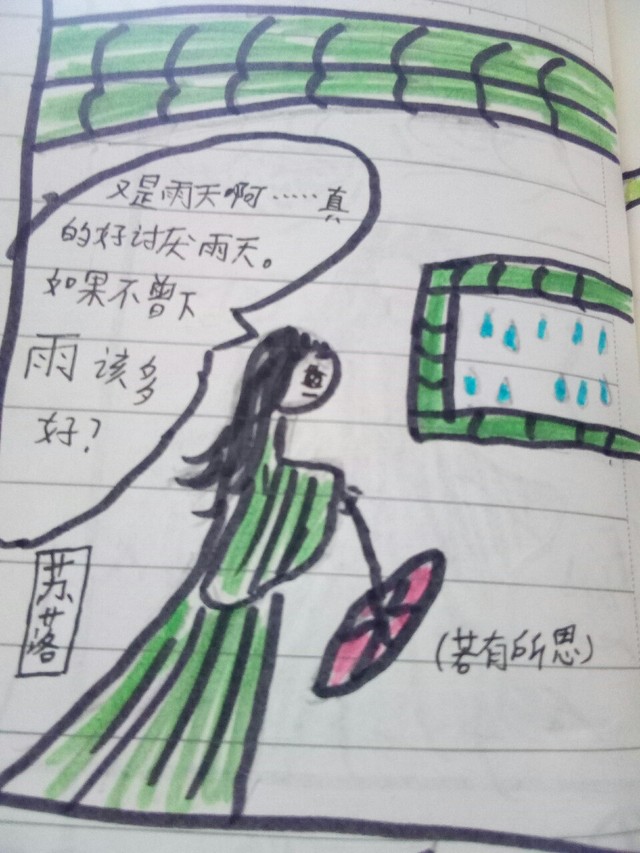 又是雨天啊……真
的好讨厌雨天。
如果不曾下
雨该多
好？
苏落
(若有所思)